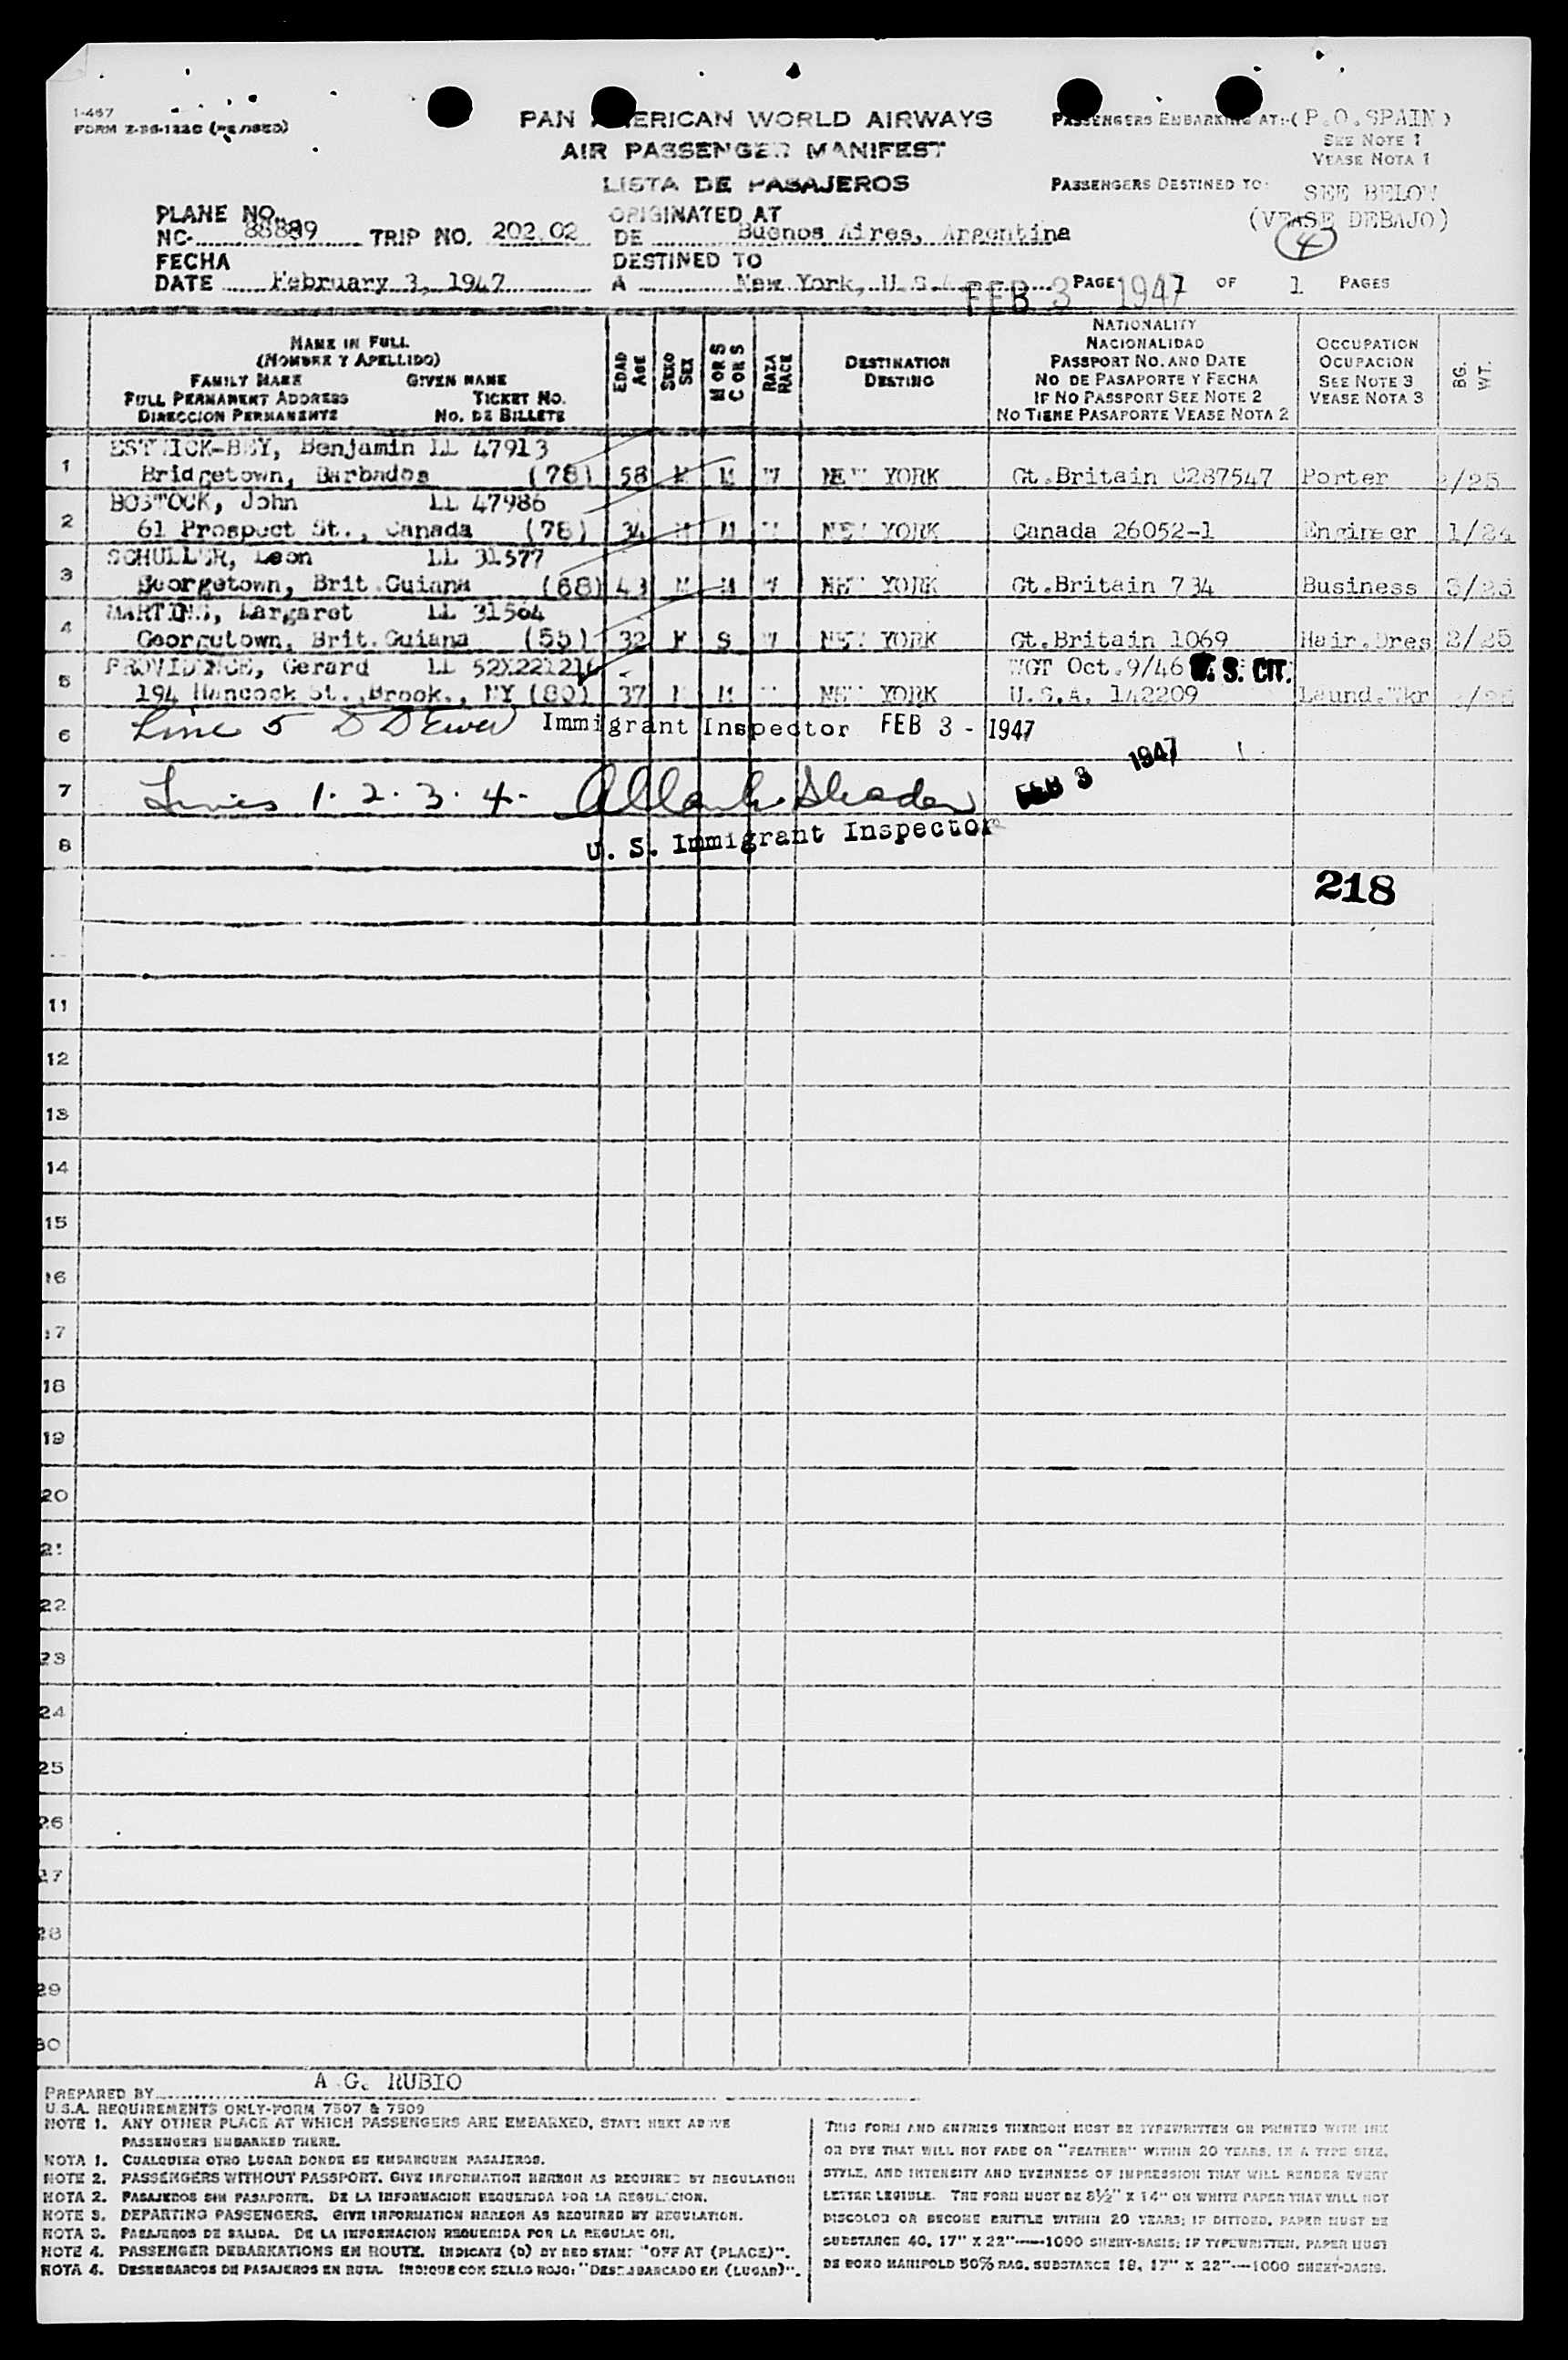 1-467
FORM (REVISED)
PAN AMERICAN WORLD AIRWAYS
AIR PASSENGER MANIFEST
LISTA DE PASAJEROS
PASSENGERS EMBARKING AT:-(P.O.SPAIN)
SEE NOTE 1
VEASE NOTA 1
PASSENGERS DESTINED TO:
SEE BELOW
(VEASE DEBAJO)
4
PLANE NO.
NC- 88899 TRIP NO. 202.02
ORIGINATED AT
DE Buenos Aires, Argentina
FECHA
DATE February 3, 1947
DESTINED TO
A New York, U.S.A.
FEB 3 1947
PAGE 1 OF 1 PAGES
NAME IN FULL
(NOMBRE Y APELLIDO)
FAMILY NAME GIVEN NAME
FULL PERMANENT ADDRESS TICKET NO.
DIRECCION PERMANENTE NO. DE BILLETE
EDAD AGE
SEXO SEX
M OR S
C OR S
RAZA RACE
DESTINATION
DESTINO
NATIONALITY
NACIONALIDAD
PASSPORT NO. AND DATE
NO DE PASAPORTE Y FECHA
IF NO PASSPORT SEE NOTE 2
NO TIENE PASAPORTE VEASE NOTA 2
OCCUPATION
OCUPACION
SEE NOTE 3
VEASE NOTA 3
BG. WT.
ESTWICK-BEY, Benjamin LL 47913
1 Bridgetown, Barbados (78) 58 M M W NEW YORK Gt.Britain C287547 Porter /25
BOSTOCK, John LL 47986
2 61 Prospect St., Canada (78) 34 M M W NEW YORK Canada 26052-1 Engineer 1/24
SCHULLER, Leon LL 31577
3 Georgetown, Brit.Guiana (68) 43 M M W NEW YORK Gt.Britain 734 Business 3/25
MARTINS, Margaret LL 31564
4 Georgetown, Brit.Guiana (55) 32 F S W NEW YORK Gt.Britain 1069 Hair.Dres 2/25
PROVIDENCE, Gerard LL WGT Oct.9/46 U.S. CIT.
5 194 Hancock St.,Brook., NY (80) 37 M M NEW YORK U.S.A. 142209 Laund.Wkr
6 Line 5 Immigrant Inspector FEB 3 - 1947
7 Lines 1. 2. 3. 4. FEB 3 1947
8 U. S. Immigrant Inspector
218
11
12
13
14
15
16
17
18
19
20
21
22
23
24
25
26
27
28
29
30
PREPARED BY A G. RUBIO
U.S.A. REQUIREMENTS ONLY-FORM 7507 & 7509
NOTE 1. ANY OTHER PLACE AT WHICH PASSENGERS ARE EMBARKED, STATE NEXT ABOVE
PASSENGERS EMBARKED THERE.
NOTA 1. CUALQUIER OTRO LUGAR DONDE SE EMBARQUEN PASAJEROS.
NOTE 2. PASSENGERS WITHOUT PASSPORT. GIVE INFORMATION HEREON AS REQUIRED BY REGULATION
NOTA 2. PASAJEROS SIN PASAPORTE. DE LA INFORMACION REQUERIDA POR LA REGULACION.
NOTE 3. DEPARTING PASSENGERS. GIVE INFORMATION HEREON AS REQUIRED BY REGULATION.
NOTA 3. PASAJEROS DE SALIDA. DE LA INFORMACION REQUERIDA POR LA REGULACION.
NOTE 4. PASSENGER DEBARKATIONS EN ROUTE. INDICATE (D) BY RED STAMP "OFF AT (PLACE)".
NOTA 4. DESEMBARCOS DE PASAJEROS EN RUTA. INDIQUE CON SELLO ROJO: "DESEMBARCADO EN (LUGAR)".
THIS FORM AND ENTRIES THEREON MUST BE TYPEWRITTEN OR PRINTED WITH INK
OR DYE THAT WILL NOT FADE OR "FEATHER" WITHIN 20 YEARS, IN A TYPE SIZE,
STYLE, AND INTENSITY AND EVENNESS OF IMPRESSION THAT WILL RENDER EVERY
LETTER LEGIBLE. THE FORM MUST BE 8½" X 14" ON WHITE PAPER THAT WILL NOT
DISCOLOR OR BECOME BRITTLE WITHIN 20 YEARS; IF DITTOED, PAPER MUST BE
SUBSTANCE 40, 17" X 22"—1000 SHEET-BASIS; IF TYPEWRITTEN, PAPER MUST
BE BOND MANIFOLD 50% RAG, SUBSTANCE 18, 17" X 22"—1000 SHEET-BASIS.